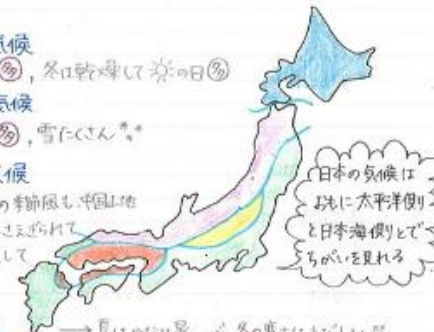 気候
多, 冬は乾燥して☀の日多
気候
多, 雪たくさん
気候
の季節風も、中国山地
さえぎられて
して
日本の気候は
おもに太平洋側り
と日本海側りとで
ちがいを見れる